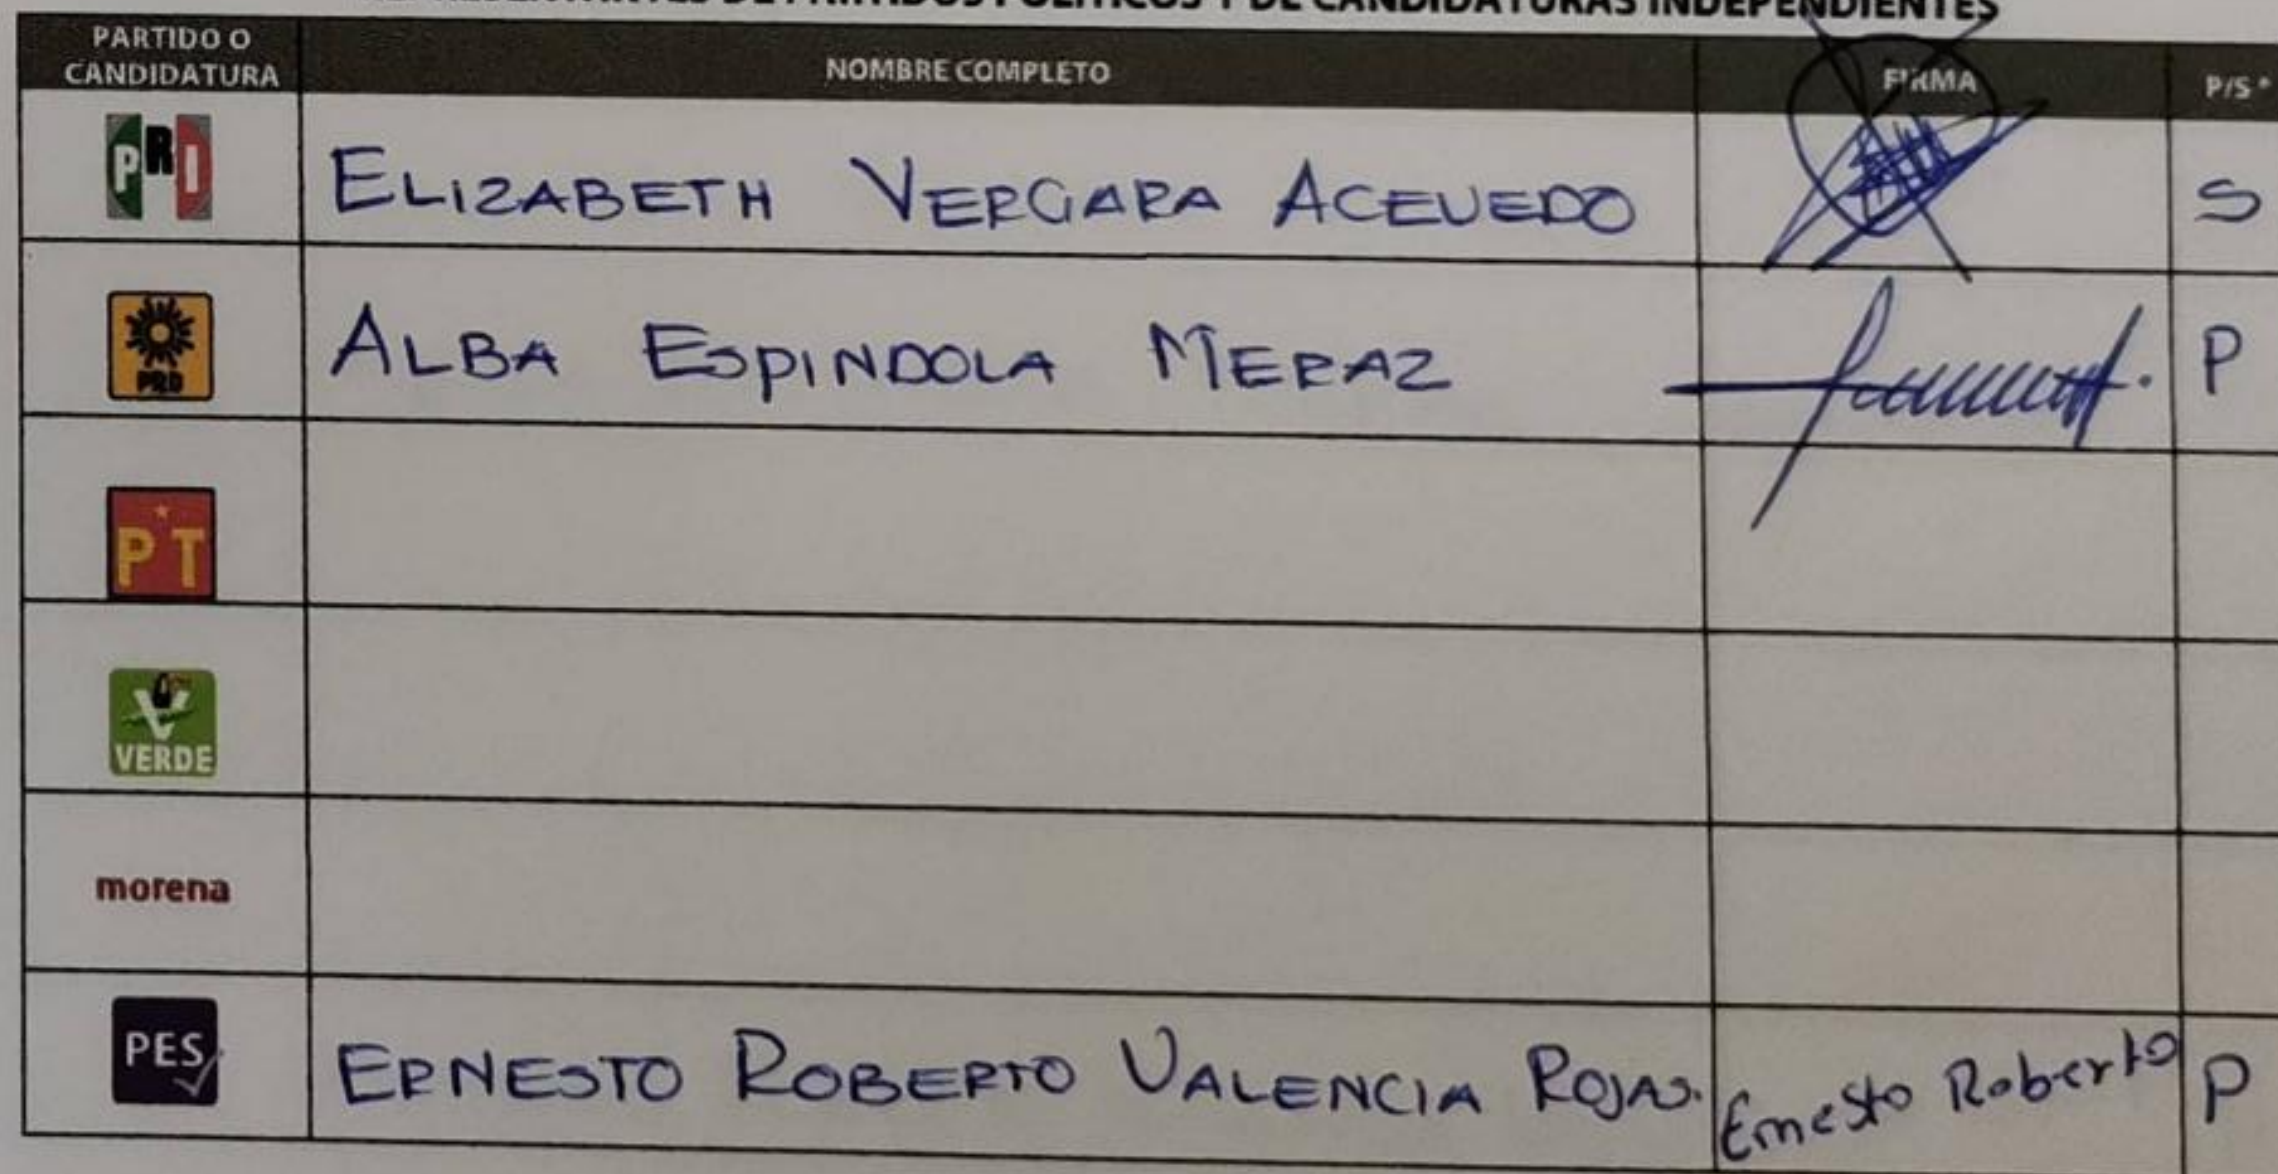 REPRESENTANTES DE PARTIDOS POLÍTICOS Y DE CANDIDATURAS INDEPENDIENTES
PARTIDO O
CANDIDATURA
NOMBRE COMPLETO FIRMA P/S*
PRI ELIZABETH VERGARA ACEVEDO S
PRD ALBA ESPINDOLA MERAZ P
PT
VERDE
morena
PES ERNESTO ROBERTO VALENCIA ROJAS. Ernesto Roberto P